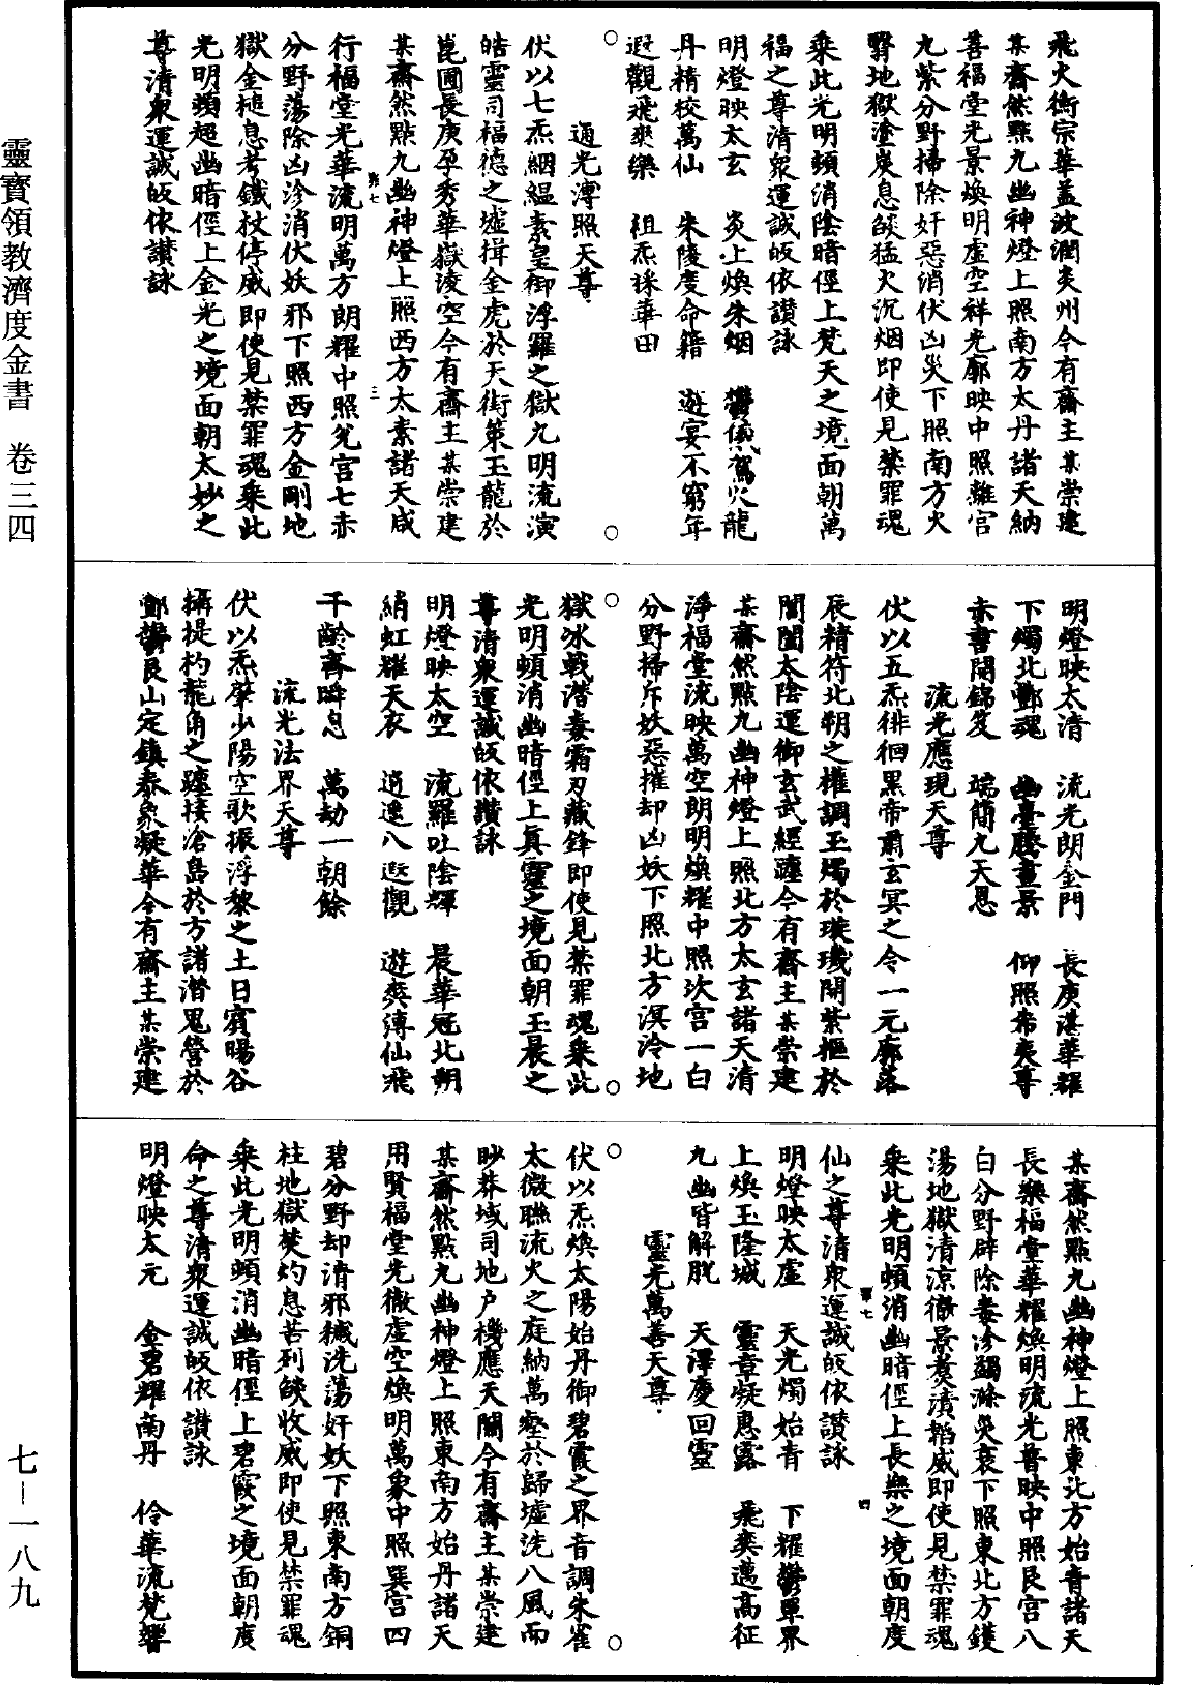 飛火衝宗華蓋波潤炎州今有齋主某崇建
某齋然點九幽神燈上照南方太丹諸天納
善福堂光景煥明虛空祥光廓映中照離宮
九紫分野掃除奸惡消伏凶災下照南方火
翳地獄塗炭息燄猛火沉烟即使見禁罪魂
乘此光明頓消陰暗徑上梵天之境面朝萬
福之尊清眾運誠皈依讚詠
明燈映太玄　炎上煥朱烟　鬱儀駕火龍
丹精校萬仙　朱陵度命籍　遊宴不窮年
遐觀飛爽樂　徂炁採華田
通光溥照天尊
伏以七炁絪縕素皇御浮羅之嶽九明流演
皓靈司福德之墟揖金虎於天街策玉龍於
崑圃長庚孕秀華嶽淩空今有齋主某崇建
某齋然點九幽神燈上照西方太素諸天咸
行福堂光華流明萬方朗耀中照兌宮七赤
分野蕩除凶沴消伏妖邪下照西方金剛地
獄金槌息考鐵杖停威即使見禁罪魂乘此
光明頓超幽暗徑上金光之境面朝太妙之
尊清眾運誠皈依讚詠
明燈映太清　流光朗金門　長庚湛華耀
下燭北酆魂　幽臺騰晝景　仰照希夷尊
赤書開錦笈　瑞簡九天恩
流光應現天尊
伏以五炁徘徊黑帝肅玄冥之令一元廓落
辰精符北朔之權調玉燭於璇璣開紫樞於
閶闔太陰運御玄武經躔今有齋主某崇建
某齋然點九幽神燈上照北方太玄諸天清
淨福堂流映萬空朗明煥耀中照坎宮一白
分野掃斥妖惡摧却凶妖下照北方溟泠地
獄冰戟潛毒霜刃藏鋒即使見禁罪魂乘此
光明頓消幽暗徑上真靈之境面朝玉晨之
尊清眾運誠皈依讚詠
明燈映太空　流羅吐陰輝　晨華冠北朔
綃虹耀天衣　逍遙八遐觀　遊爽溥仙飛
千齡齊瞬息　萬劫一朝餘
流光法界天尊
伏以炁肇少陽空歌振浮黎之土日賓暘谷
攝提杓龍角之躔接滄島於方諸潛鬼營於
酆部艮山定鎮泰象凝華今有齋主某崇建
某齋然點九幽神燈上照東北方始青諸天
長樂福堂華耀煥明流光普映中照艮宮八
白分野辟除毒沴蠲滌災衰下照東北方鑊
湯地獄清涼徹景煑漬韜威即使見禁罪魂
乘此光明頓消幽暗徑上長樂之境面朝度
仙之尊清眾運誠皈依讚詠
明燈映太虛　天光燭始青　下耀鬱單界
上煥玉隆城　靈章凝惠露　飛爽邁高征
九幽皆解脫　天澤慶回靈
靈光萬善天尊
伏以炁煥太陽始丹御碧霞之界音調朱雀
太微聯流火之庭納萬壑於歸墟洗八風而
眇莽域司地户機應天關今有齋主某崇建
某齋然點九幽神燈上照東南方始丹諸天
用賢福堂光徹虛空煥明萬象中照巽宮四
碧分野却清邪穢洗蕩奸妖下照東南方銅
柱地獄焚灼息苦列燄收威即使見禁罪魂
乘此光明頓消幽暗徑上碧霞之境面朝廣
命之尊清眾運誠皈依讚詠
明燈映太元　金碧耀南丹　伶華流梵響
靈寶領教濟度金書　卷三四
七－一八九